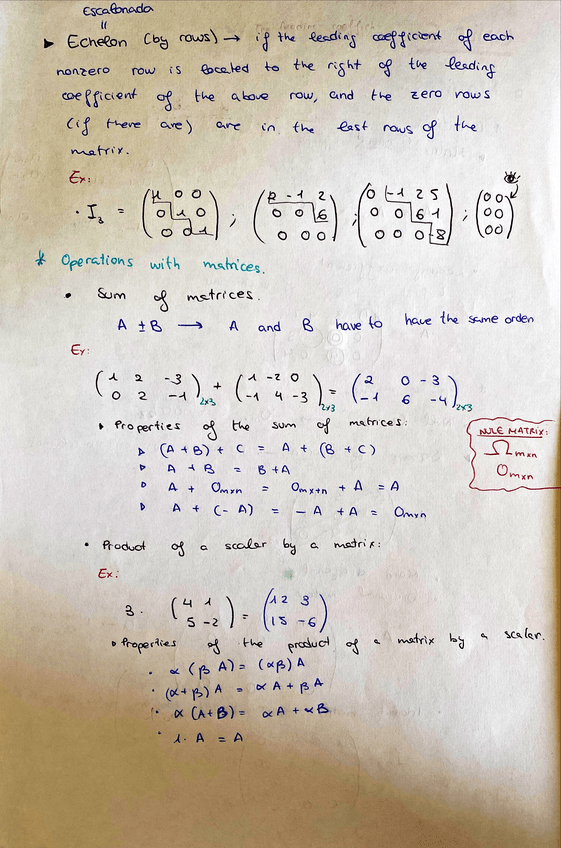 Escalonada
"
► Echelon (by rows) → if the leading coefficient of each
nonzero row is located to the right of the leading
coefficient of the above row, and the zero rows
(if there are) are in the last rows of the
matrix.
Ex:
· I₃ = (1 0 0 / 0 1 0 / 0 0 1) ; (2 -1 2 / 0 0 6 / 0 0 0) ; (0 -1 2 5 / 0 0 6 1 / 0 0 0 8) ; (0 0 / 0 0 / 0 0)
* Operations with matrices.
• Sum of matrices.
A ± B → A and B have to have the same orden
Ex:
(1 2 -3 / 0 2 -1)2x3 + (1 -2 0 / -1 4 -3)2x3 = (2 0 -3 / -1 6 -4)2x3
Properties of the sum of matrices:
(A+B) + C = A + (B + C)
A + B = B+A
A + 0mxn = 0mx+n + A = A
A + (-A) = -A + A = 0mxn
NULE MATRIX:
Ωmxn
0mxn
• Product of a scaler by a matrix:
Ex:
3. (4 1 / 5 -2) = (12 3 / 15 -6)
Properties of the product of a matrix by a scaler.
· α (β A) = (αβ) A
· (α+β) A = αA + βA
· α (A+B) = αA + αB
· 1· A = A